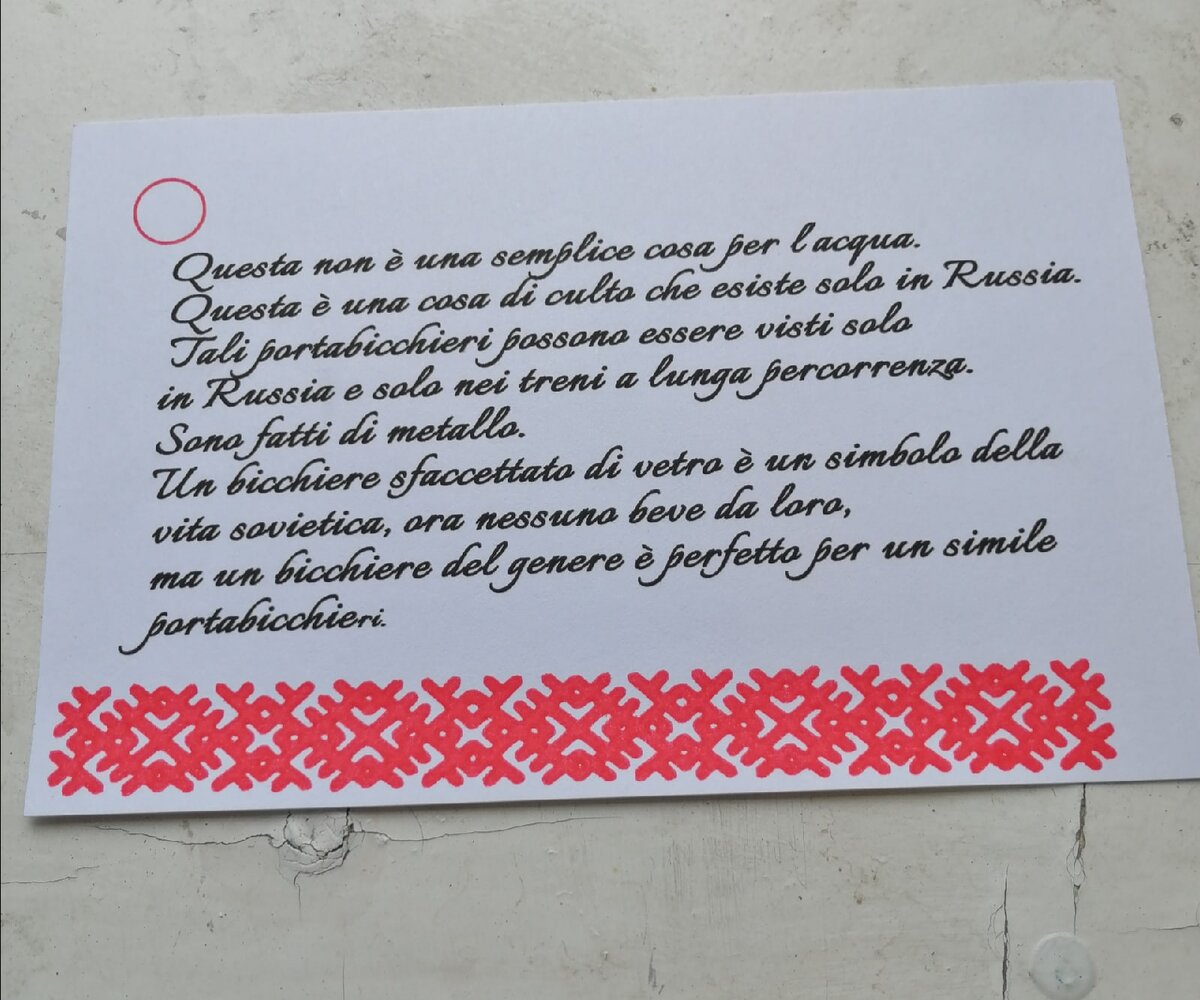 Questa non è una semplice cosa per l'acqua.
Questa è una cosa di culto che esiste solo in Russia.
Tali portabicchieri possono essere visti solo
in Russia e solo nei treni a lunga percorrenza.
Sono fatti di metallo.
Un bicchiere sfaccettato di vetro è un simbolo della
vita sovietica, ora nessuno beve da loro,
ma un bicchiere del genere è perfetto per un simile
portabicchieri.